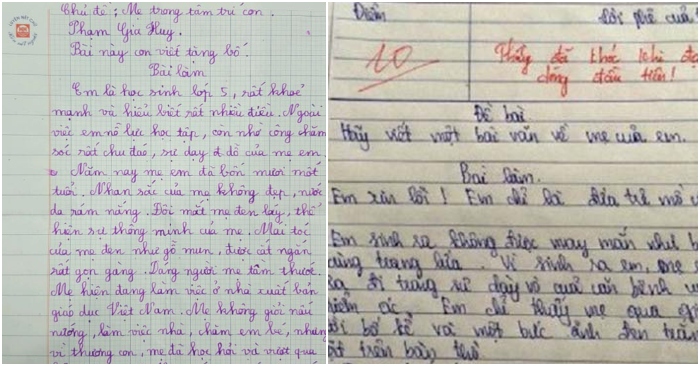 Chủ đề: Mẹ trong tâm trí con.
Phạm Gia Huy.
Bài này con viết tặng bố.
Bài làm
Em là học sinh lớp 5, rất khoẻ
mạnh và hiểu biết rất nhiều điều. Ngoài
việc em nỗ lực học tập, còn nhờ công chăm
sóc rất chu đáo, sự dạy dỗ của mẹ em.
Năm nay mẹ em đã bốn mươi một
tuổi. Nhan sắc của mẹ không đẹp, nước
da rám nắng. Đôi mắt mẹ đen láy, thể
hiện sự thông minh của mẹ. Mái tóc
của mẹ đen như gỗ mun, được cắt ngắn
rất gọn gàng. Dáng người mẹ tầm thước.
Mẹ hiện đang làm việc ở nhà xuất bản
giáo dục Việt Nam. Mẹ không giỏi nấu
nướng, làm việc nhà, chăm em bé, nhưng
vì thương con, mẹ đã học hỏi và vượt qua
Điểm
Lời phê của
10
Thầy đã khóc khi đọ
dòng đầu tiên!
Đề bài
Hãy viết một bài văn về mẹ của em.
Bài làm.
Em xin lỗi! Em chỉ là đứa trẻ mồ cô
Em sinh ra không được may mắn như b
cùng trang lứa. Vì sinh ra em, mẹ e
ra đi trong sự dày vò của căn bệnh u
hiểm ác. Em chỉ thấy mẹ qua
bố kể và một bức ảnh đen trắn
trên bàn thờ